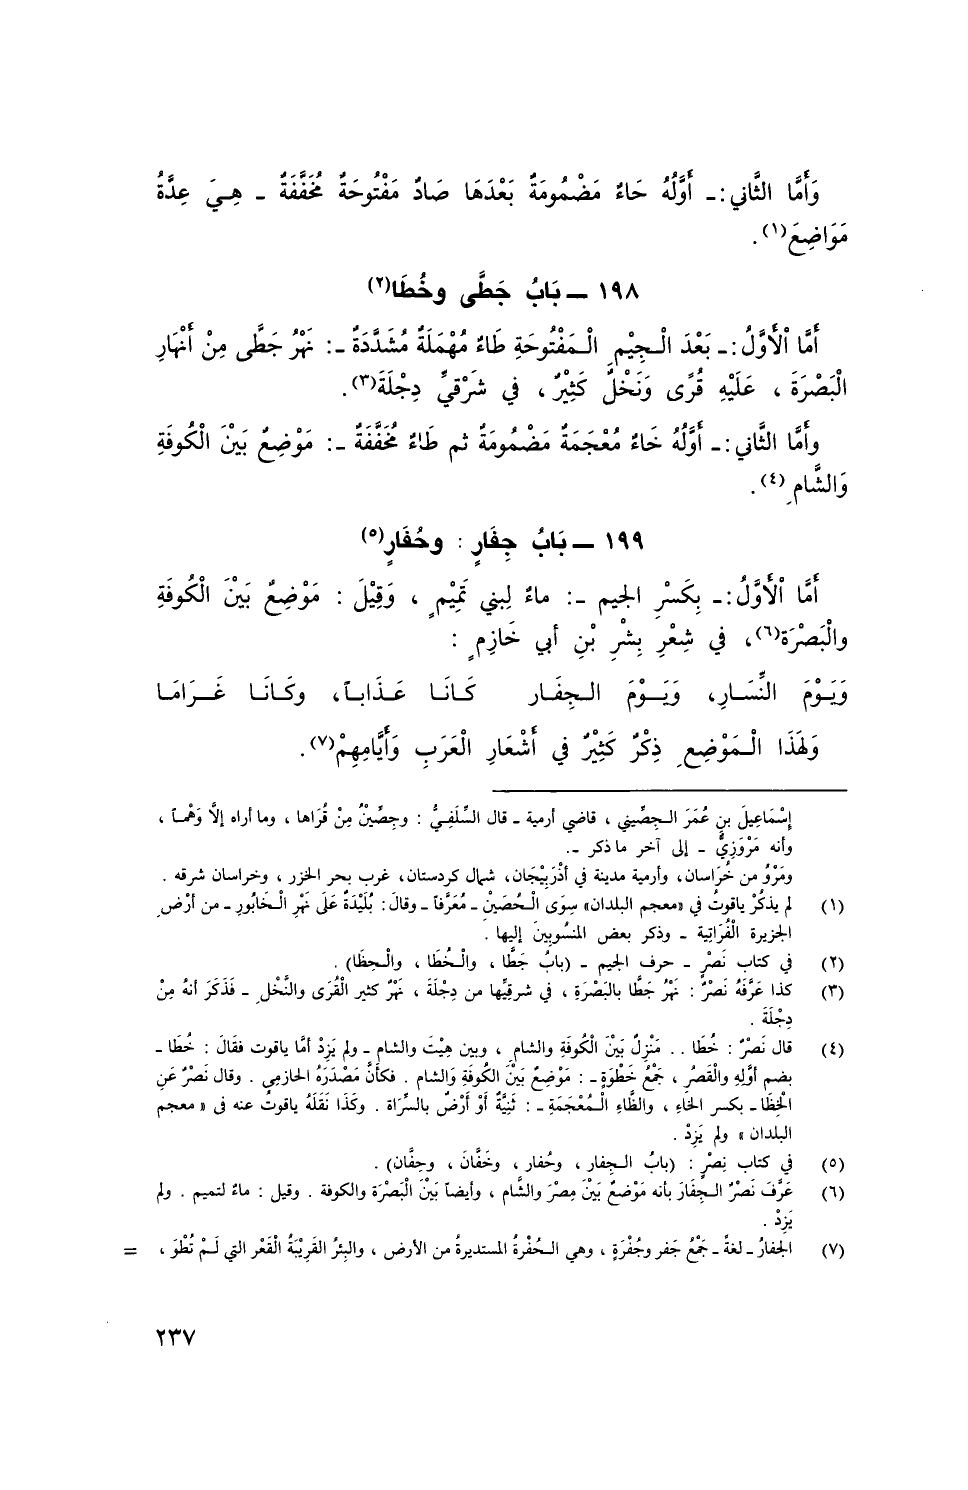 وَأَمَّا الثَّاني :ـ أَوَّلُهُ حَاءٌ مَضْمُومَةٌ بَعْدَهَا صَادٌ مَفْتُوحَةٌ مُخَفَّفَةٌ ـ هِـيَ عِدَّةُ
مَوَاضِعَ(١) .
١٩٨ ــ بَابُ جَطَّى وخُطَا(٢)
أَمَّا اْلأَوَّلُ :ـ بَعْدَ الْـجِيْمِ الْـمَفْتُوحَةِ طَاءٌ مُهْمَلَةٌ مُشَدَّدَةٌ ـ: نَهْرُ جَطَّى مِنْ أَنْهَارِ
الْبَصْرَةَ ، عَلَيْهِ قُرًى وَنَخْلٌ كَثِيْرٌ ، في شَرْقيِّ دِجْلَةَ(٣) .
وأَمَّا الثَّاني :ـ أَوَّلُهُ خَاءٌ مُعْجَمَةٌ مَضْمُومَةٌ ثم طَاءٌ مُخَفَّفَةٌ ـ: مَوْضِعٌ بَيْنَ الْكُوفَةِ
وَالشَّامِ (٤) .
١٩٩ ــ بَابُ جِفَارٍ : وحُفَارٍ(٥)
أَمَّا اْلأَوَّلُ :ـ بِكَسْرِ الجيم ـ: ماءٌ لِبني تَمِيْمٍ ، وَقِيْلَ : مَوْضِعٌ بَيْنَ الْكُوفَةِ
والْبَصْرَة(٦)، في شِعْرِ بِشْرِ بْنِ أبي خَازِمٍ :
وَيَوْمَ النِّسَـارِ، وَيَـوْمَ الـجِفَـار كَـانَـا عَـذَابـاً، وكَـانَـا غَـرَامَـا
وَلِهَذَا الْـمَوْضِعِ ذِكْرٌ كَثِيْرٌ في أَشْعَارِ الْعَرَبِ وَأَيَّامِهِمْ(٧) .
إِسْمَاعِيلَ بنِ عُمَرَ الـحِصِّيني ، قاضي أرمية ـ قال السِّلَفِيُّ : وحِصِّيْنٌ مِنْ قُرَاها ، وما أراه إلاَّ وَهْمـاً ،
وأنه مَرْوَزِيٌّ ـ إلى آخر ما ذكر ـ.
ومَرْوُ من خُرَاسان، وأرمية مدينة في أذْرَبِيْجَان، شمال كردستان، غرب بحر الخزر ، وخراسان شرقه .
(١) لم يذكُرْ ياقوتُ في «معجم البلدان» سِوَى الـحُصَيْنِ ـ مُعَرَّفاً ـ وقالَ : بُلَيْدَةٌ عَلَى نَهْرِ الْـخَابُورِ ـ من أرْضِ
الجزيرة الْفُرَاتِية ـ وذكر بعض المنْسُوبِينَ إليها .
(٢) في كتاب نَصْرٍ ـ حرف الجيم ـ (بابُ جَطَّا ، والْـخُطَا ، والْـحِظَا) .
(٣) كذا عَرَّفَهُ نَصْرٌ : نَهْرُ جَطَّا بالبَصْرَةِ ، في شرقيِّها من دِجْلَةَ ، نَهْرٌ كثير الْقُرَى والنَّخْلِ ـ فَذَكَرَ أنهُ مِنْ
دِجْلَةَ .
(٤) قال نَصْرٌ : خُطَا .. مَنْزِلٌ بَيْنَ الْكُوفَةِ والشامِ ، وبين هِيْتَ والشامِ ـ ولم يَزِدْ أمَّا ياقوت فقَالَ : خُطَا ـ
بضم أوَّلِهِ والْقَصْرُ ، جَمْعُ خَطْوَةٍ ـ : مَوْضِعٌ بَيْنَ الكُوفَةِ وَالشامِ . فكأنَّ مَصْدَرَهُ الحازمي . وقال نَصْرٌ عَنِ
الْخِظَا ـ بكسر الخاءِ ، والظَّاءِ الْـمُعْجَمَةِ ـ : ثَنِيَّةٌ أَوْ أَرْضٌ بالسَّرَاة . وكَذَا نَقَلَهُ ياقوتُ عنه فى « معجم
البلدان » ولم يَزِدْ .
(٥) في كتاب نِصْرٍ : (بابُ الـجِفار ، وحُفار ، وخَفَّانَ ، وحِفَّان) .
(٦) عَرَّفَ نَصْرٌ الـجِفَارَ بأنه مَوْضعٌ بَيْنَ مِصْرَ والشَّام ، وأيضاً بَيْنَ الْبَصْرَةِ والكوفة . وقيل : ماءٌ لتميم . ولم
يَزِدْ .
(٧) الجفارُ ـ لغةً ـ جَمْعُ جَفر وجُفْرَةٍ ، وهي الـحُفْرةُ المستديرةُ من الأرض ، والبِئرُ القَرِيْبَةُ الْقَعْرِ التي لَـمْ تُطْوَ ، =
٢٣٧